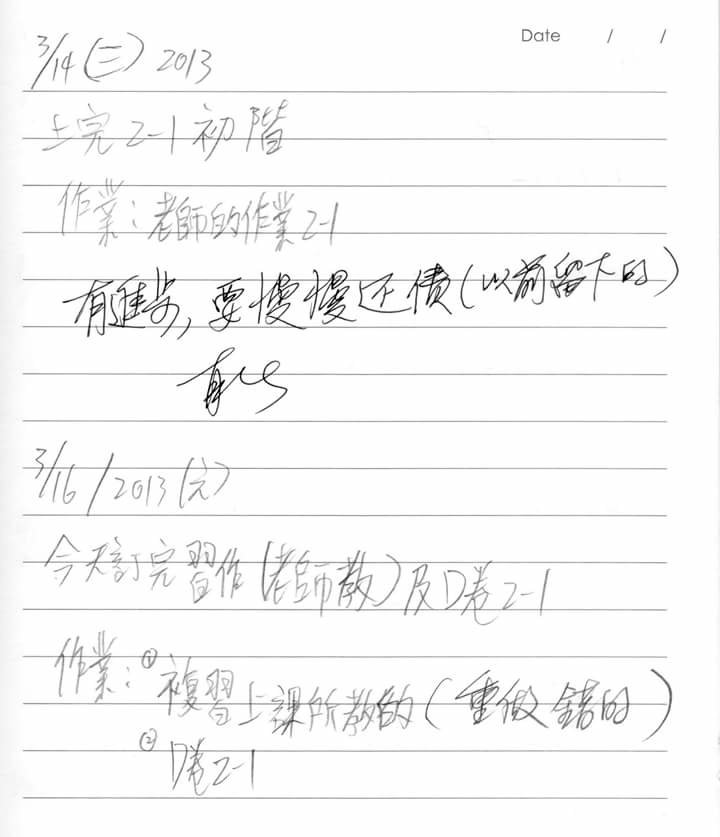 Date / /
3/14(三) 2013
上完2-1初階
作業:老師的作業2-1
有進步,要慢慢还債(以前留下的)
3/16/2013(六)
今天訂完習作(老師教)及D卷2-1
作業:①複習上課所教的(重做錯的)
②D卷2-1